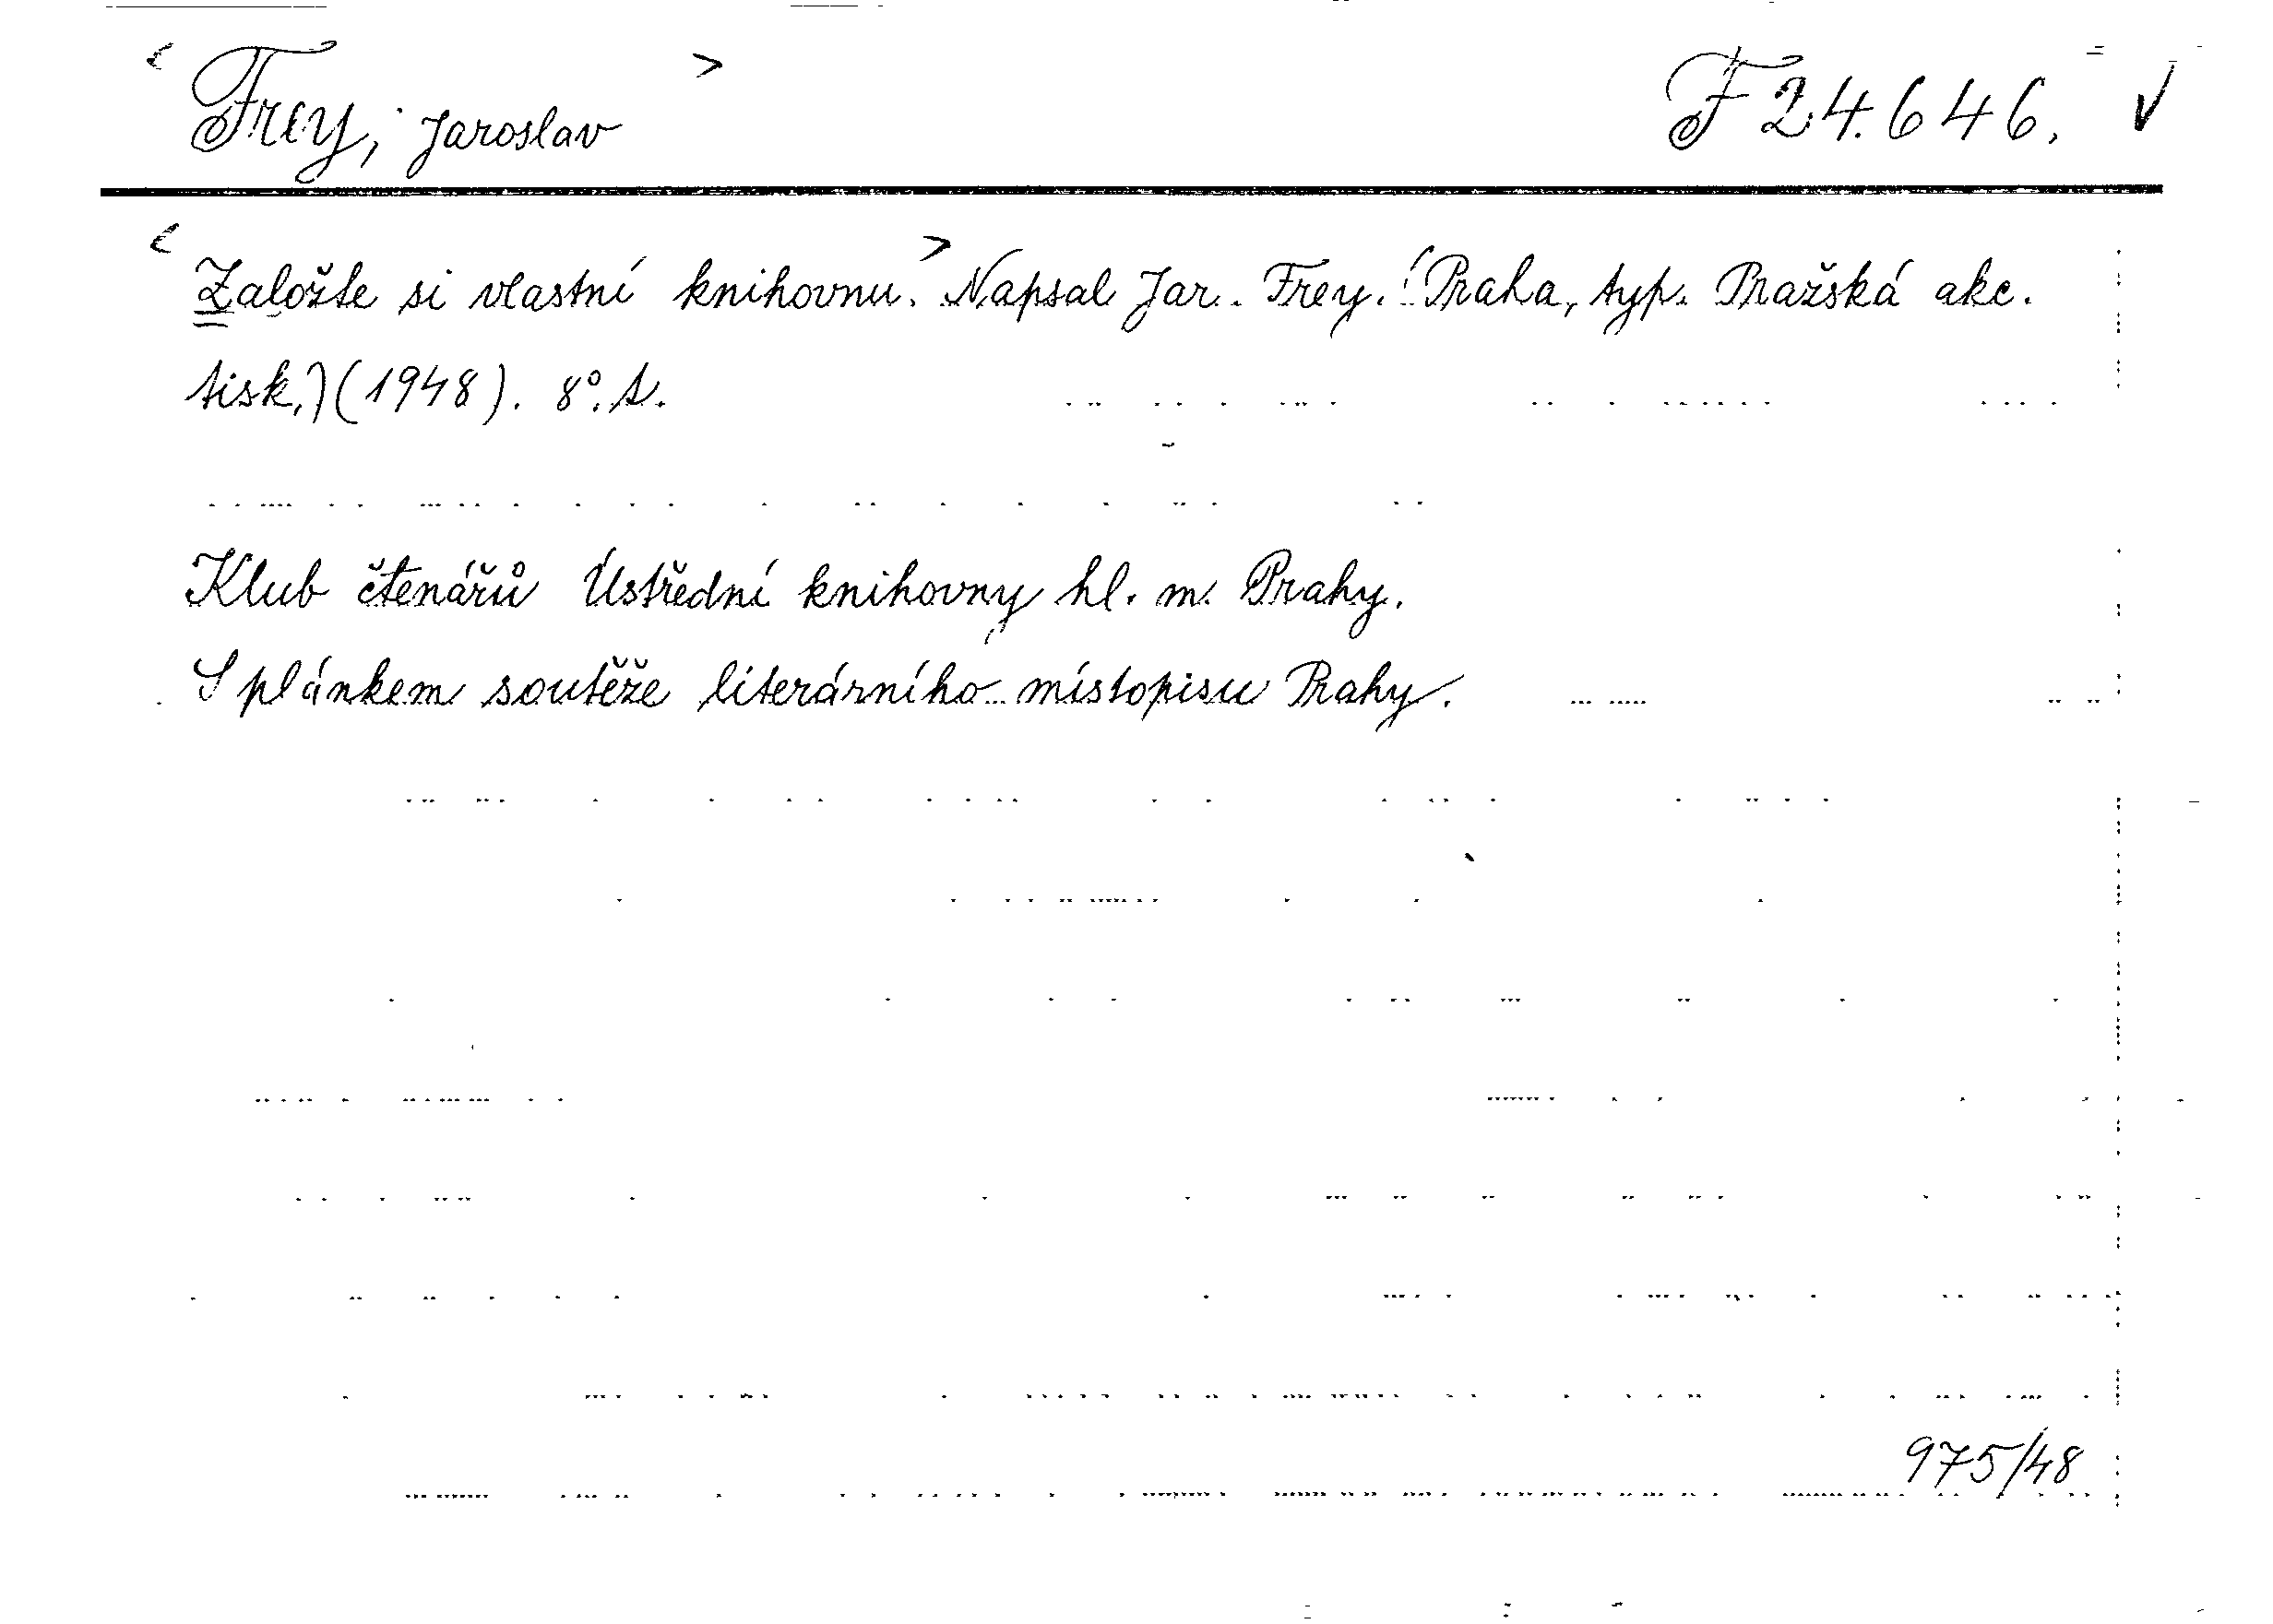 < Frey, Jaroslav > F 24.646. √
< Založte si vlastní knihovnu. > Napsal Jar. Frey. (Praha, typ. Pražská akc.
tisk.) (1948). 8°. A.
Klub čtenářů Ústřední knihovny hl. m. Prahy.
S plánkem soutěže literárního místopisu Prahy.
975/48